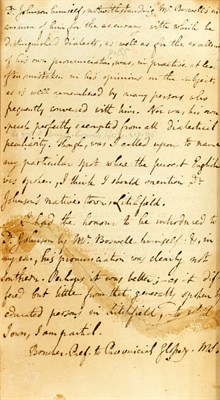 Dr Johnson himself, notwithstanding Mr Boswell's
of him for the accuracy with which he
distinguished dialects, as well as for the
of his own pronunciation, was, in practice, at least
often mistaken in his opinions on the subject
as is well remembered by many persons who
frequently conversed with him. Nor was his own
speech perfectly exempted from all dialectical
peculiarity. Though, was I called upon to name
any particular spot where the purest English
was spoken, I think I should mention Dr
Johnson's native town Litchfield.
I had the honour to be introduced to
Dr Johnson by Mr Boswell himself: &, in
my ear, his pronunciation was clearly not
Southern. Perhaps it was better; – as it dif-
fered but little from that generally spoken
educated persons in Litchfield, to
Town, I am partial.
Boucher. Pref. to Provincial Glossy. MS.